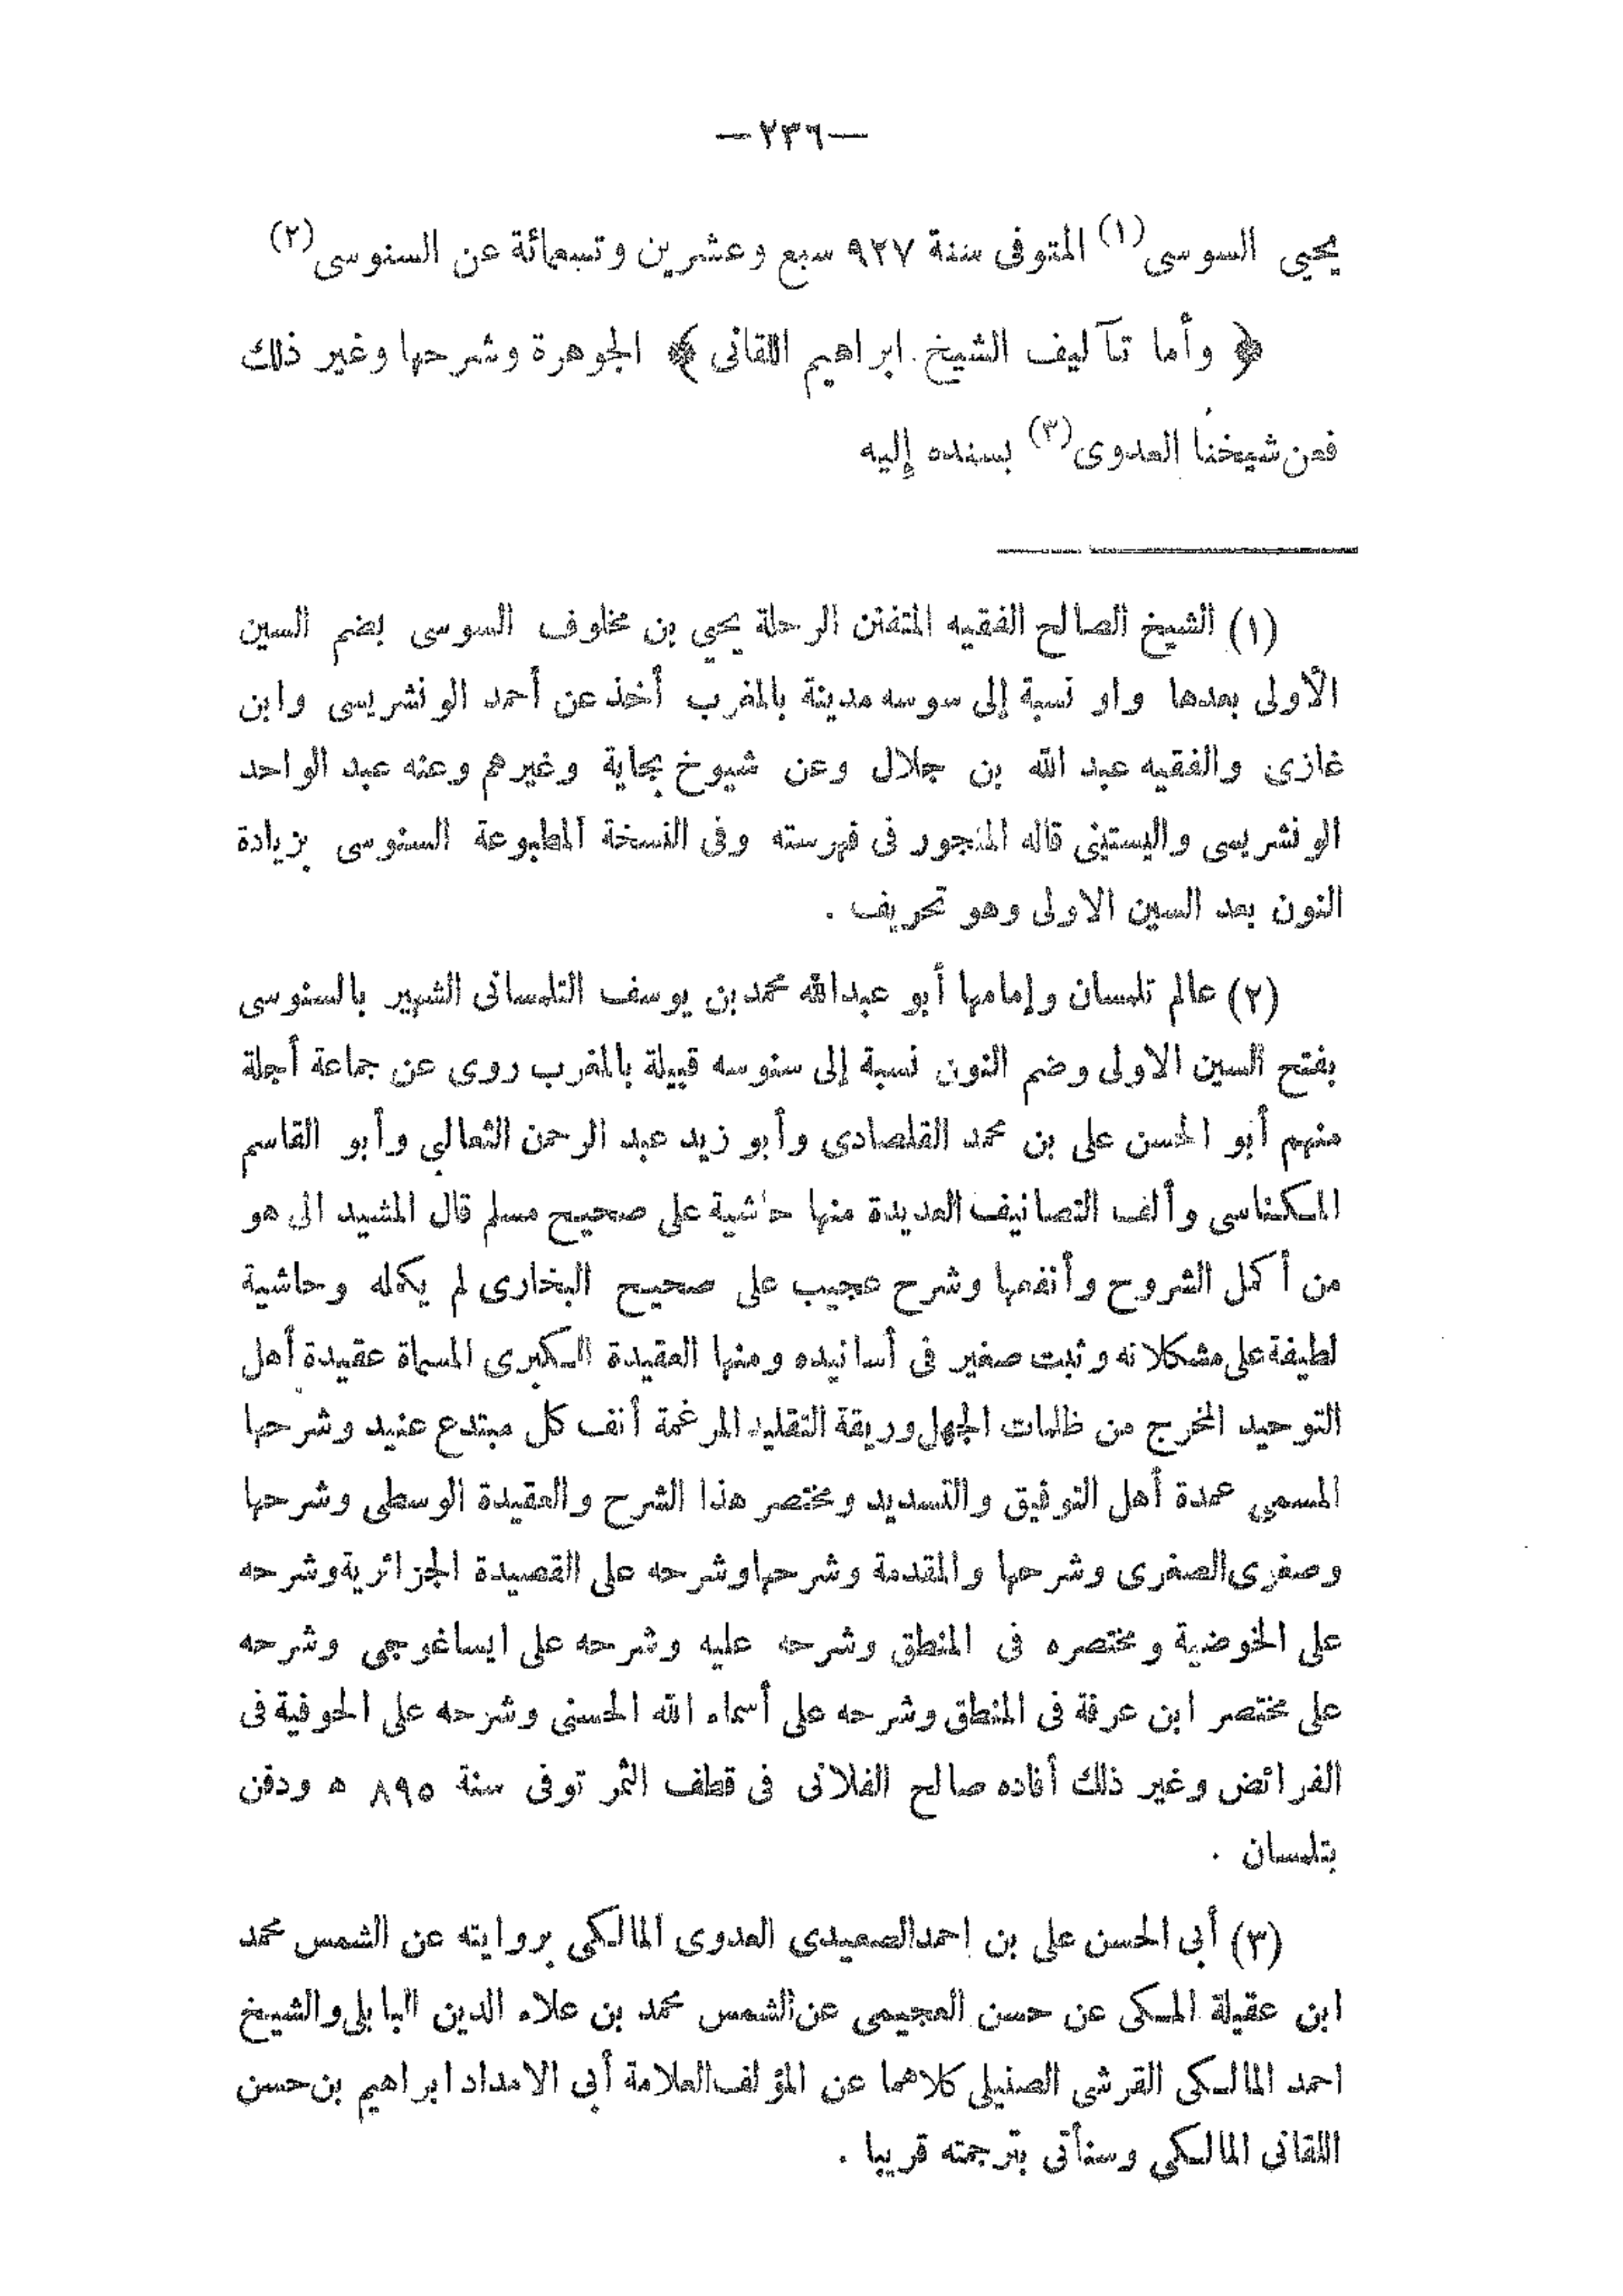 —٢٣٦—
يحيى السوسى(١) المتوفى سنة ٩٢٧ سبع وعشرين وتسعمائة عن السنوسى(٢)
﴿ وأما تآليف الشيخ ابراهيم اللقانى ﴾ الجوهرة وشرحها وغير ذلك
فعن شيخنا العدوى(٣) بسنده إليه
(١) الشيخ الصالح الفقيه المتفنن الرحلة يحيي بن مخلوف السوسى بضم السين
الأولى بعدها واو نسبة إلى سوسه مدينة بالمغرب أخذ عن أحمد الونشريسى وابن
غازى والفقيه عبد الله بن جلال وعن شيوخ بجاية وغيرهم وعنه عبد الواحد
الونشريسى واليستينى قاله المنجور فى فهرسته وفى النسخة المطبوعة السنوسى بزيادة
النون بعد السين الاولى وهو تحريف .
(٢) عالم تلمسان وإمامها أبو عبدالله محمد بن يوسف التلمسانى الشهير بالسنوسى
بفتح السين الاولى وضم النون نسبة إلى سنوسه قبيلة بالمغرب روى عن جماعة أجلة
منهم أبو الحسن على بن محمد القلصادى وأبو زيد عبد الرحمن الثعالبي وأبو القاسم
المكناسى وألف التصانيف العديدة منها حاشية على صحيح مسلم قال المشيد الى هو
من أكمل الشروح وأنفعها وشرح عجيب على صحيح البخارى لم يكمله وحاشية
لطيفة على مشكلاته وثبت صغير فى أسانيده ومنها العقيدة الكبرى المسماة عقيدة أهل
التوحيد المخرج من ظلمات الجهل وريقة التقليد المرغمة أنف كل مبتدع عنيد وشرحها
المسمي عمدة أهل التوفيق والتسديد ومختصر هذا الشرح والعقيدة الوسطى وشرحها
وصغرى الصغرى وشرحها والمقدمة وشرحها وشرحه على القصيدة الجزائرية وشرحه
على الخوضية ومختصره فى المنطق وشرحه عليه وشرحه على ايساغوجى وشرحه
على مختصر ابن عرفة فى المنطق وشرحه على أسماء الله الحسنى وشرحه على الحوفية فى
الفرائض وغير ذلك أفاده صالح الفلانى فى قطف الثمر توفى سنة ٨٩٥ ه ودفن
بتلمسان .
(٣) أبى الحسن على بن احمد الصعيدى العدوى المالكى بروايته عن الشمس محمد
ابن عقيلة المكى عن حسن العجيمى عن الشمس محمد بن علاء الدين البابلى والشيخ
احمد المالكى القرشى الصنيلى كلاهما عن المؤلف العلامة أبى الامداد ابراهيم بن حسن
اللقانى المالكى وسنأتى بترجمته قريبا .